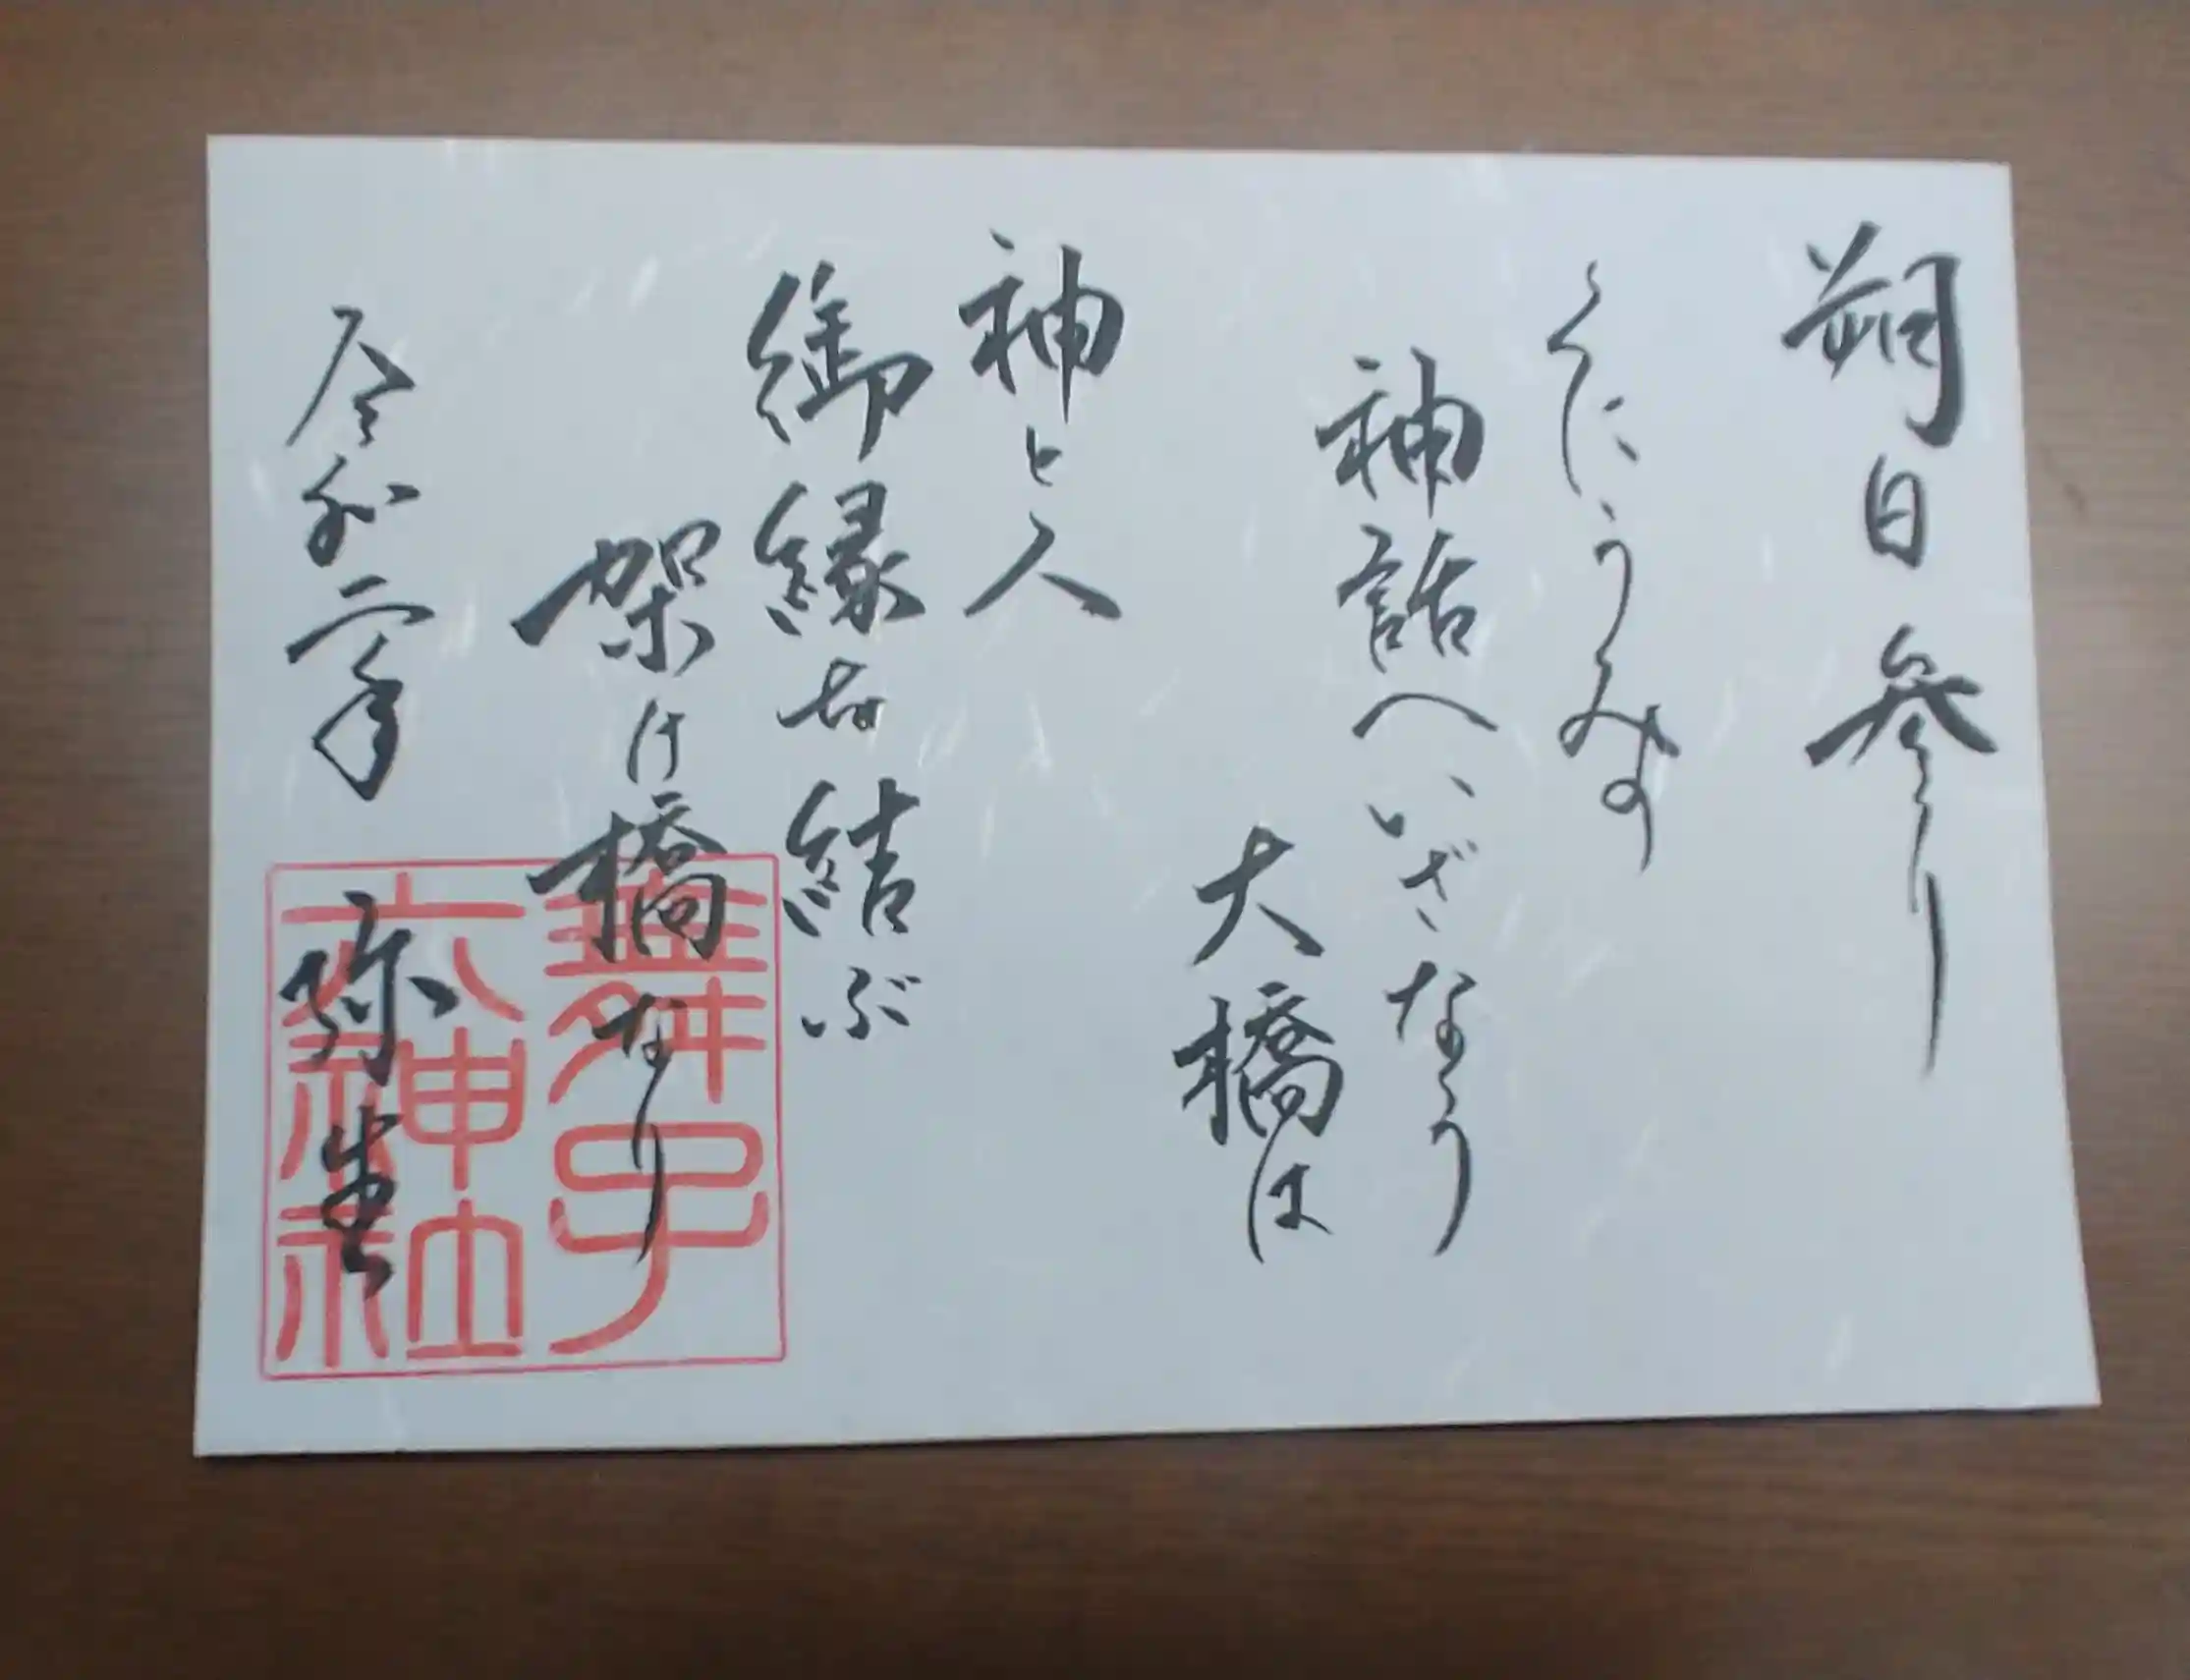 朔日参り
くにうみの
神話へいざなう
大橋は
神と人
御縁を結ぶ
架け橋なり
令和二年 弥生
舞子
六神社